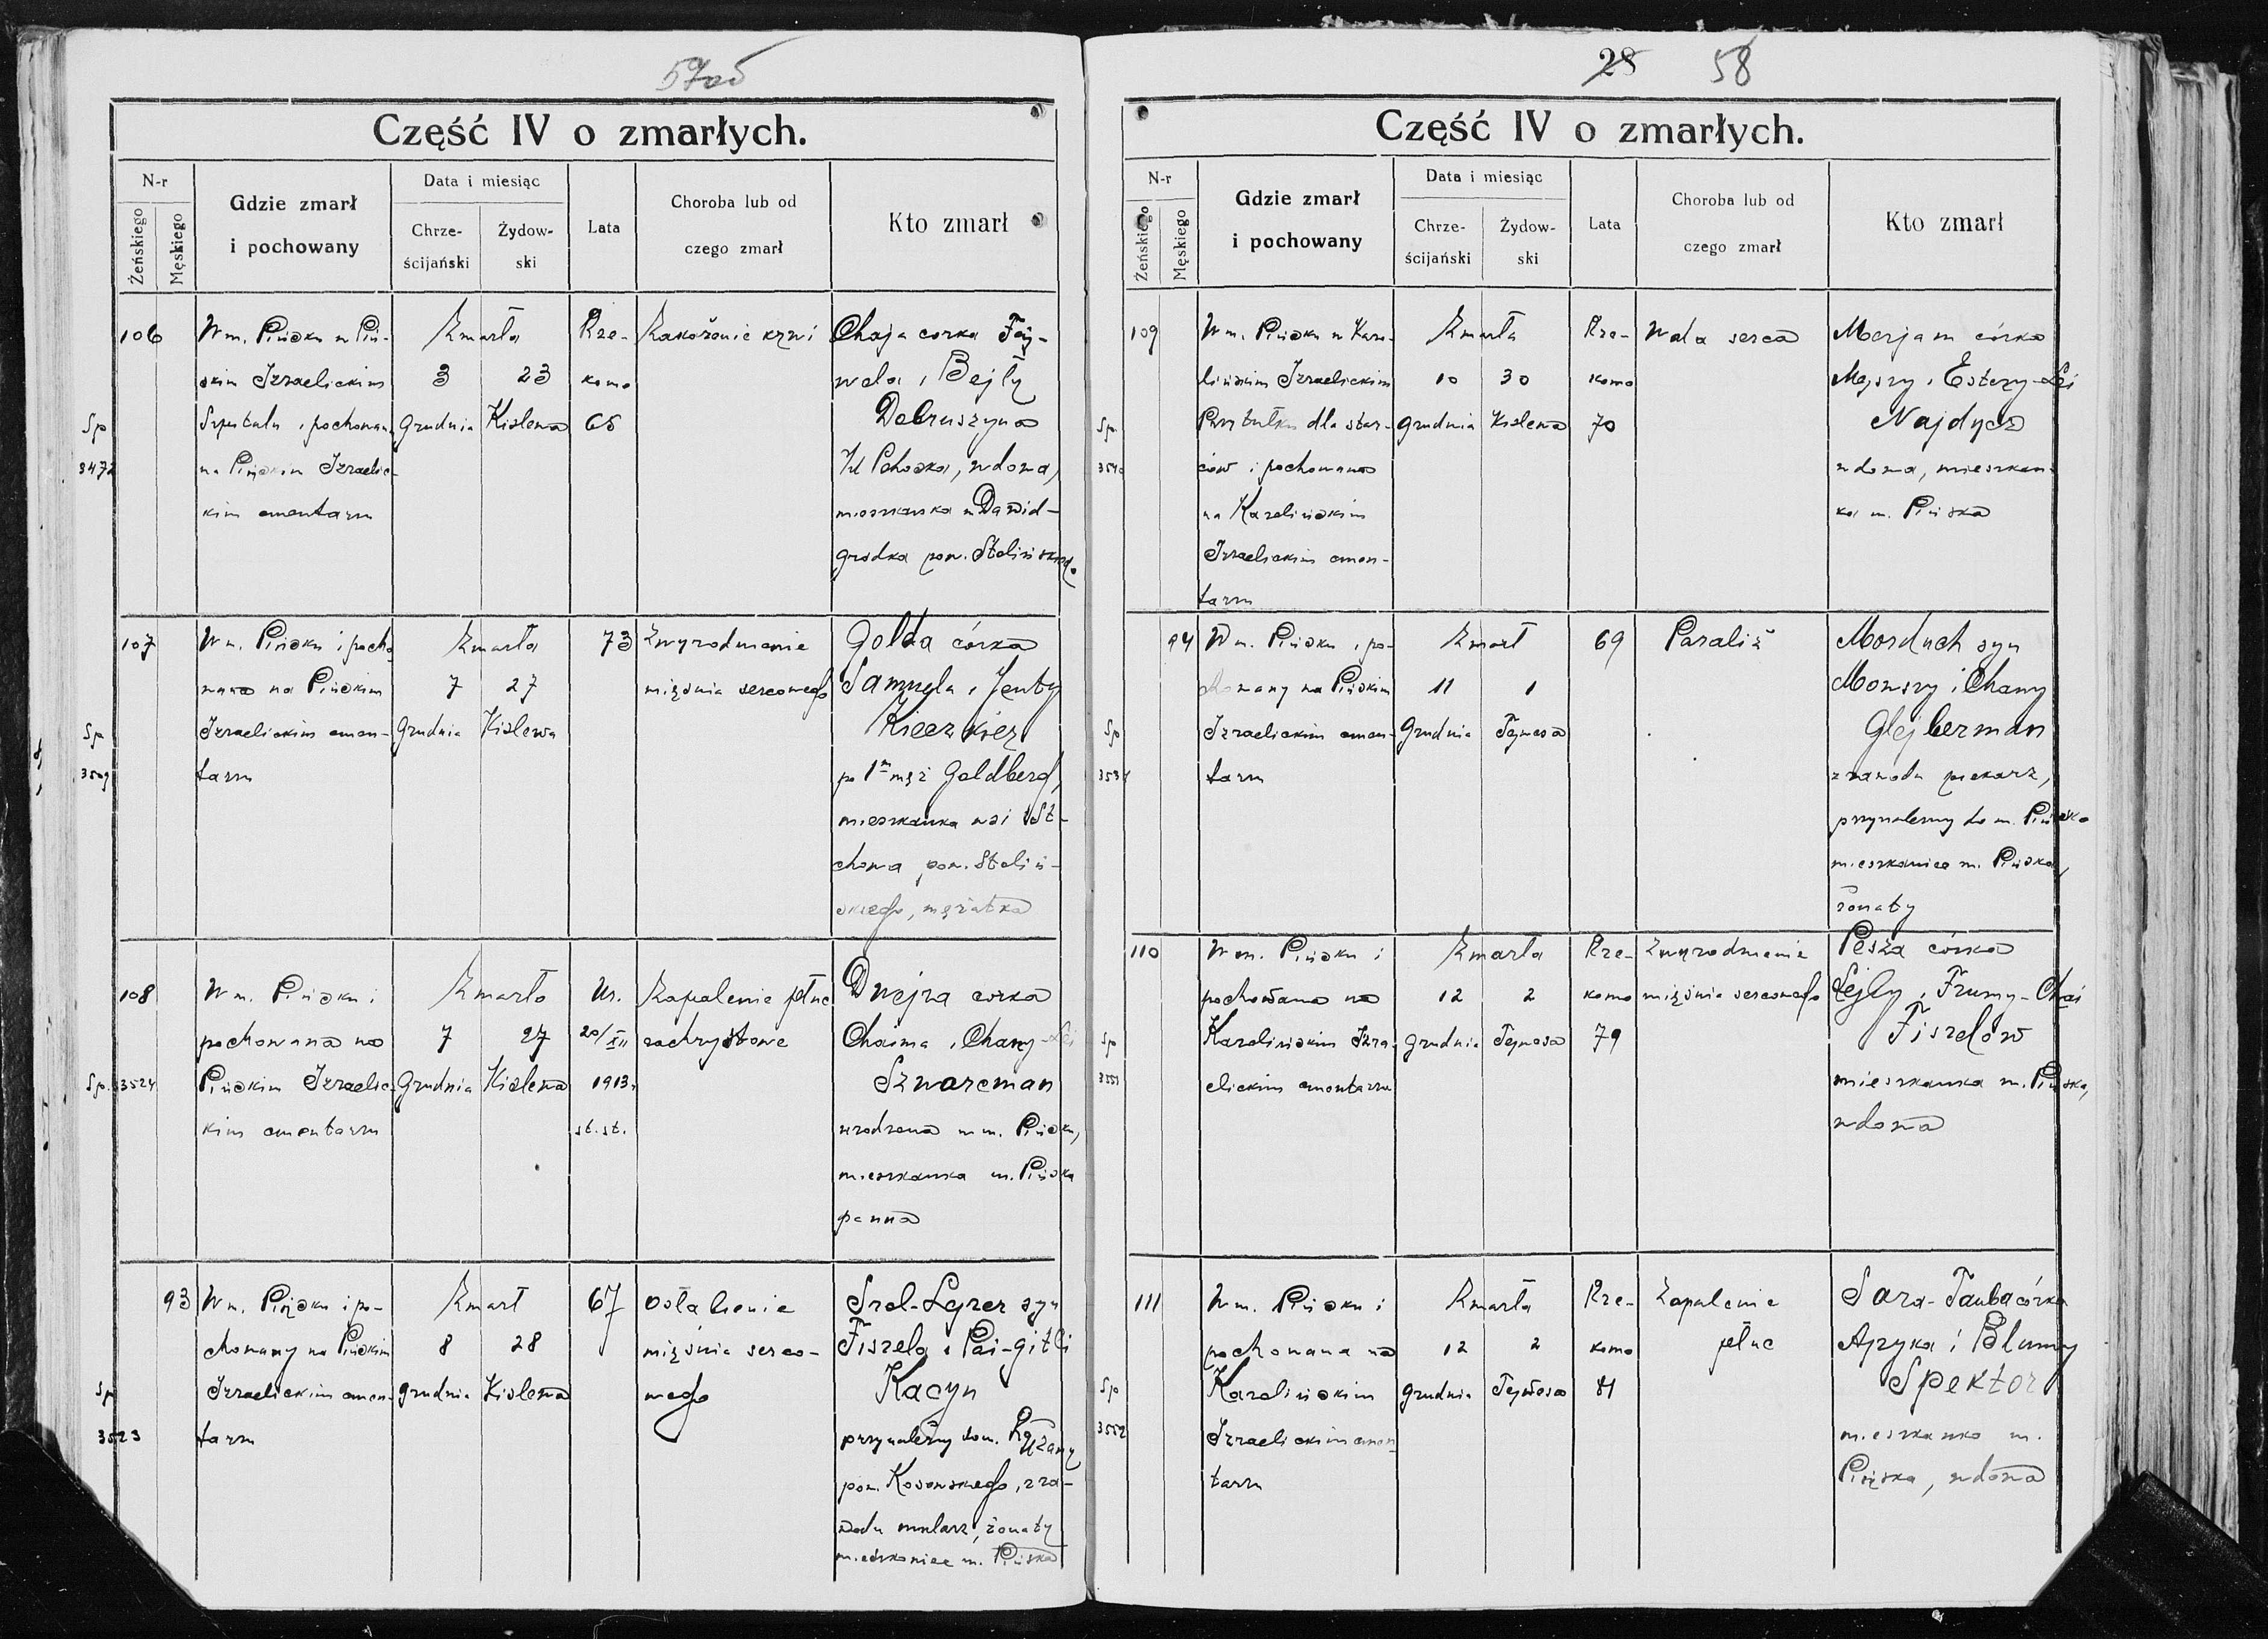 57
Część IV o zmarłych.
N-r
Żeńskiego
Męskiego
Gdzie zmarł
i pochowany
Data i miesiąc
Chrze-
ścijański
Żydow-
ski
Lata
Choroba lub od
czego zmarł
Kto zmarł
106
W m. Pińsku w Piń-
skim Izraelickim
Szpitalu i pochowana
na Pińskim Izraelic-
kim cmentarzu
Zmarła
3 23
Grudnia Kislewa
Rze-
komo
65
Zakażenie krwi
Chaja corka Faj-
wela i Bejły
Dobruszyna
wdowa,
mieszkanka m Dawid-
gródka pow. Stolińskiego
Sp
3472
107
W m. Pińsku i pocho
wana na Pińskim
Izraelickim cmen-
tarzu
Zmarła
7 27
Grudnia Kislewa
73
Zwyrodnienie
mięśnia sercowego
Golda córka
Samuela i Jenty
Kieczkier
po 1m mąż Goldberg,
mieszkanka wsi St-
chowa pow. Stoliń-
skiego, mężatka
Sp
3509
108
W m. Pińsku i
pochowana na
Pińskim Izraelic-
kim cmentarzu
Zmarła
7 27
Grudnia Kislewa
Ur.
20/XII
1913r
st. st.
Zapalenie płuc
Dwejra corka
Chaima i Chany-Lei
Szwarcman
urodzona w m. Pińsku,
mieszkanka m. Pińska
panna
Sp. 3524
93
W m. Pińsku i po-
chowany na Pińskim
Izraelickim cmen-
tarzu
Zmarł
8 28
grudnia Kislewa
67
Osłabienie
mięśnia serco-
wego
Srol-Lejzer syn
Fiszela i Pai-Gitli
Kacyn
przynależny do m. Różany
pow. Kosowskiego, z za-
wodu mularz, żonaty
mieszkaniec m. Pińska
Sp
3523
28 58
Część IV o zmarłych.
N-r
Żeńskiego
Męskiego
Gdzie zmarł
i pochowany
Data i miesiąc
Chrze-
ścijański
Żydow-
ski
Lata
Choroba lub od
czego zmarł
Kto zmarł
109
W m. Pińsku w Karo-
lińskim Izraelickim
Przytułku dla star-
ców i pochowana
na Karolińskim
Izraelickim cmen-
tarzu
Zmarła
10 30
grudnia Kislewa
Rze-
komo
70
Wada serca
Merjam córka
Mejszy i Estery-Lei
Najdycz
wdowa, mieszkan-
ka m. Pińska
Sp.
94
W m. Pińsku i po-
chowany na Pińskim
Izraelickim cmen-
tarzu
Zmarł
11 1
Grudnia Tejwesa
69
Paraliż
Morduch syn
Mowszy i Chany
Glejberman
z zawodu piekarz,
przynależny do m. Pińska
mieszkaniec m. Pińska,
żonaty
Sp
110
W m. Pińsku i
pochowana na
Karolińskim Izra-
elickim cmentarzu
Zmarła
12 2
grudnia Tejwesa
Rze-
komo
79
Zwyrodnienie
mięśnia sercowego
Pesza córka
Lejby i Frumy-Chai
Fiszelow
mieszkanka m. Pińska,
wdowa
Sp
3551
111
W m. Pińsku i
pochowana na
Karolińskim
Izraelickim cmen
tarzu
Zmarła
12 2
grudnia Tejwesa
Rze-
komo
81
Zapalenie
płuc
Sara-Tauba córka
Ajzyka i Blumy
Spektor
mieszkanka m.
Pińska, wdowa
Sp
3552